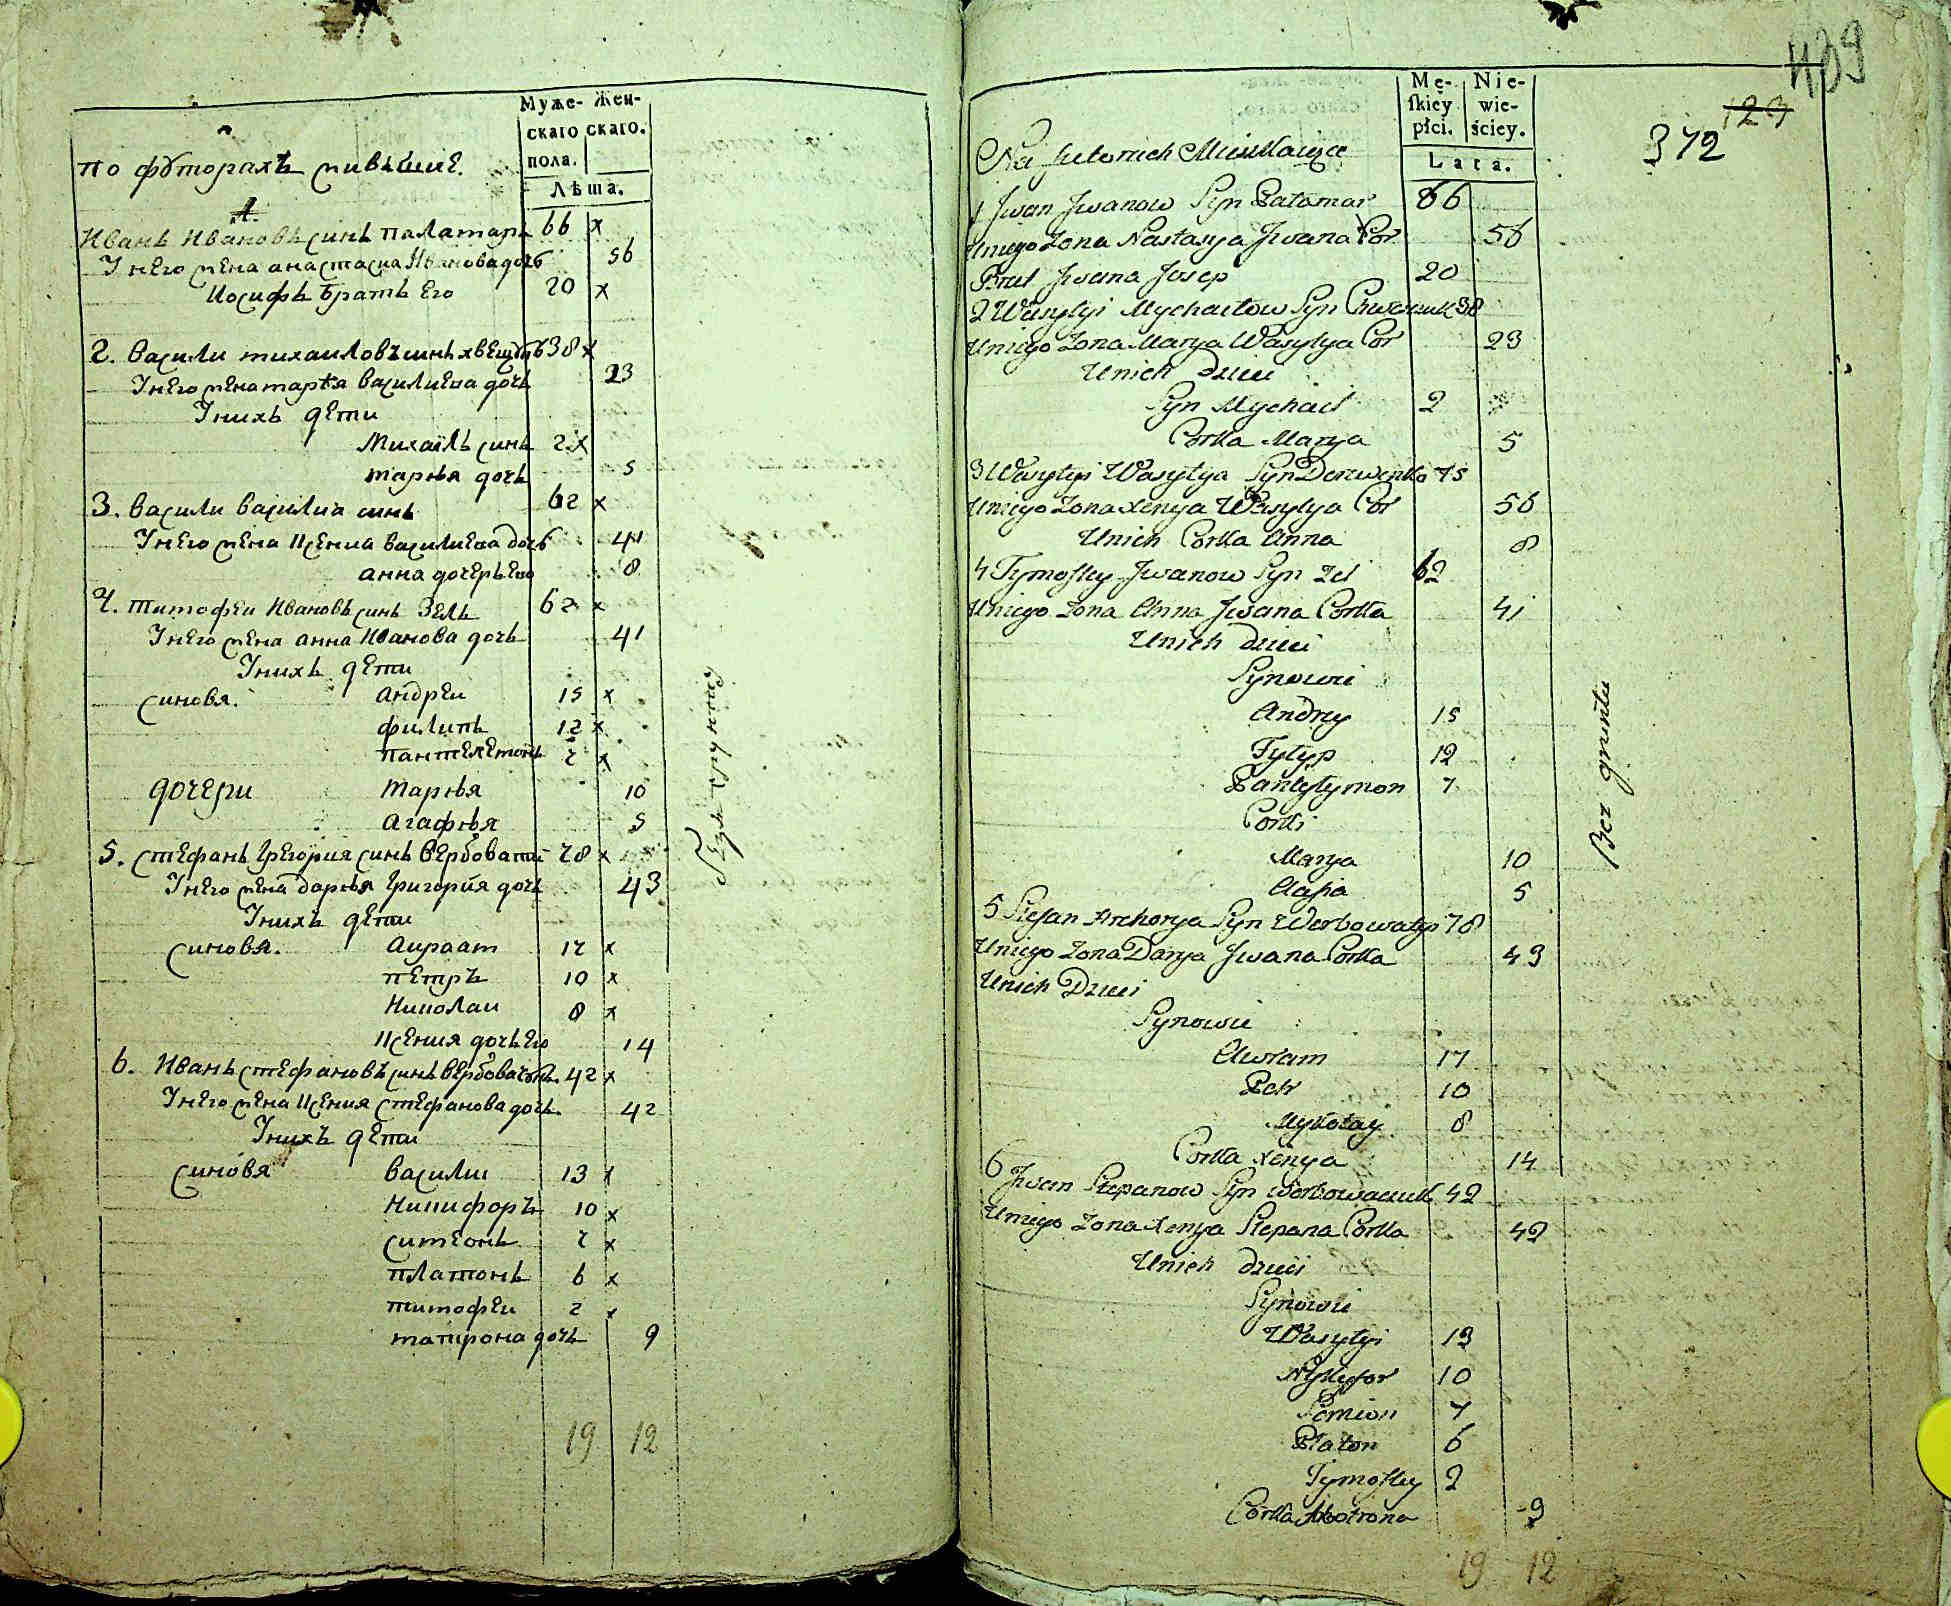 Муже- Жен-
скаго скаго.
пола.
Лѣта.
по футорахъ живъшие.
1.
Иванъ Ивановъ синъ паламаръ 66 x
У него жена анастасиа Иванова дочь 56
Иосифъ братъ его 20 x
2. васили михаиловъ синъ 38 x
У него жена маръя василиева дочь 23
У нихъ дети
Михаилъ синъ 2 x
маръя дочь 5
3. васили василиа синъ 62 x
У него жена Ксениа василиева дочь 41
анна дочерь его 8
4. тимофеи Ивановъ синъ Зель 62 x
У него жена анна Иванова дочь 41
У нихъ дети
синовя. Андреи 15 x
филипъ 12 x
пантелемонъ 7 x
дочери маръя 10
Агафъя 5
5. стефанъ Грегория синъ вербоватии 78 x
У него жена даръя Григория дочь 43
У нихъ дети
синовя. Авраам 17 x
петръ 10 x
Николаи 8 x
Ксения дочь его 14
6. Иванъ стефановъ синъ вербовачокъ. 42 x
У него жена Ксения стефанова дочь. 42
У нихъ дети
синовя васили 13 x
Никифоръ 10 x
симеонъ 7 x
платонъ 6 x
тимофеи 2 x
матрона дочь 9
19 12
Безъ грунту
439
129
372
Mę- Nie-
skiey wie-
płci. ściey.
Lata.
Na futorach Mieszkaiące
1 Jwan Jwanow Syn Pałamar 66
Uniego Zona Nastasya Jwana Cor 56
Brat Jwana Josep 20
2 Wasylyi Mychaiłow Syn 38
Uniego Zona Marya Wasylya Cor 23
Unich Dzieci
Syn Mychaił 2
Corka Marya 5
3 Wasylyi Wasylya Syn 75
Uniego Zona Xenya Wasylya Cor 56
Unich Corka Anna 8
4 Tymofky Jwanow Syn Zel 62
Uniego Zona Anna Jwana Corka 41
Unich Dzieci
Synowie
Andrey 15
Fylyp 12
Pantylymon 7
Corki
Marya 10
Aafia 5
5 Stefan Hrehorya Syn Werbowatyi 78
Uniego Zona Darya Jwana Corka 43
Unich Dzieci
Synowie
Awram 17
Petr 10
Mykołay 8
Corka Xenya 14
6 Jwan Stepanow Syn Werbowaczuk 42
Uniego Zona Xenya Stepana Corka 42
Unich Dzieci
Synowie
Wasylyi 13
Nykyfor 10
Semion 7
Płaton 6
Tymofky 2
Corka Motrona 9
19 12
Bez gruntu